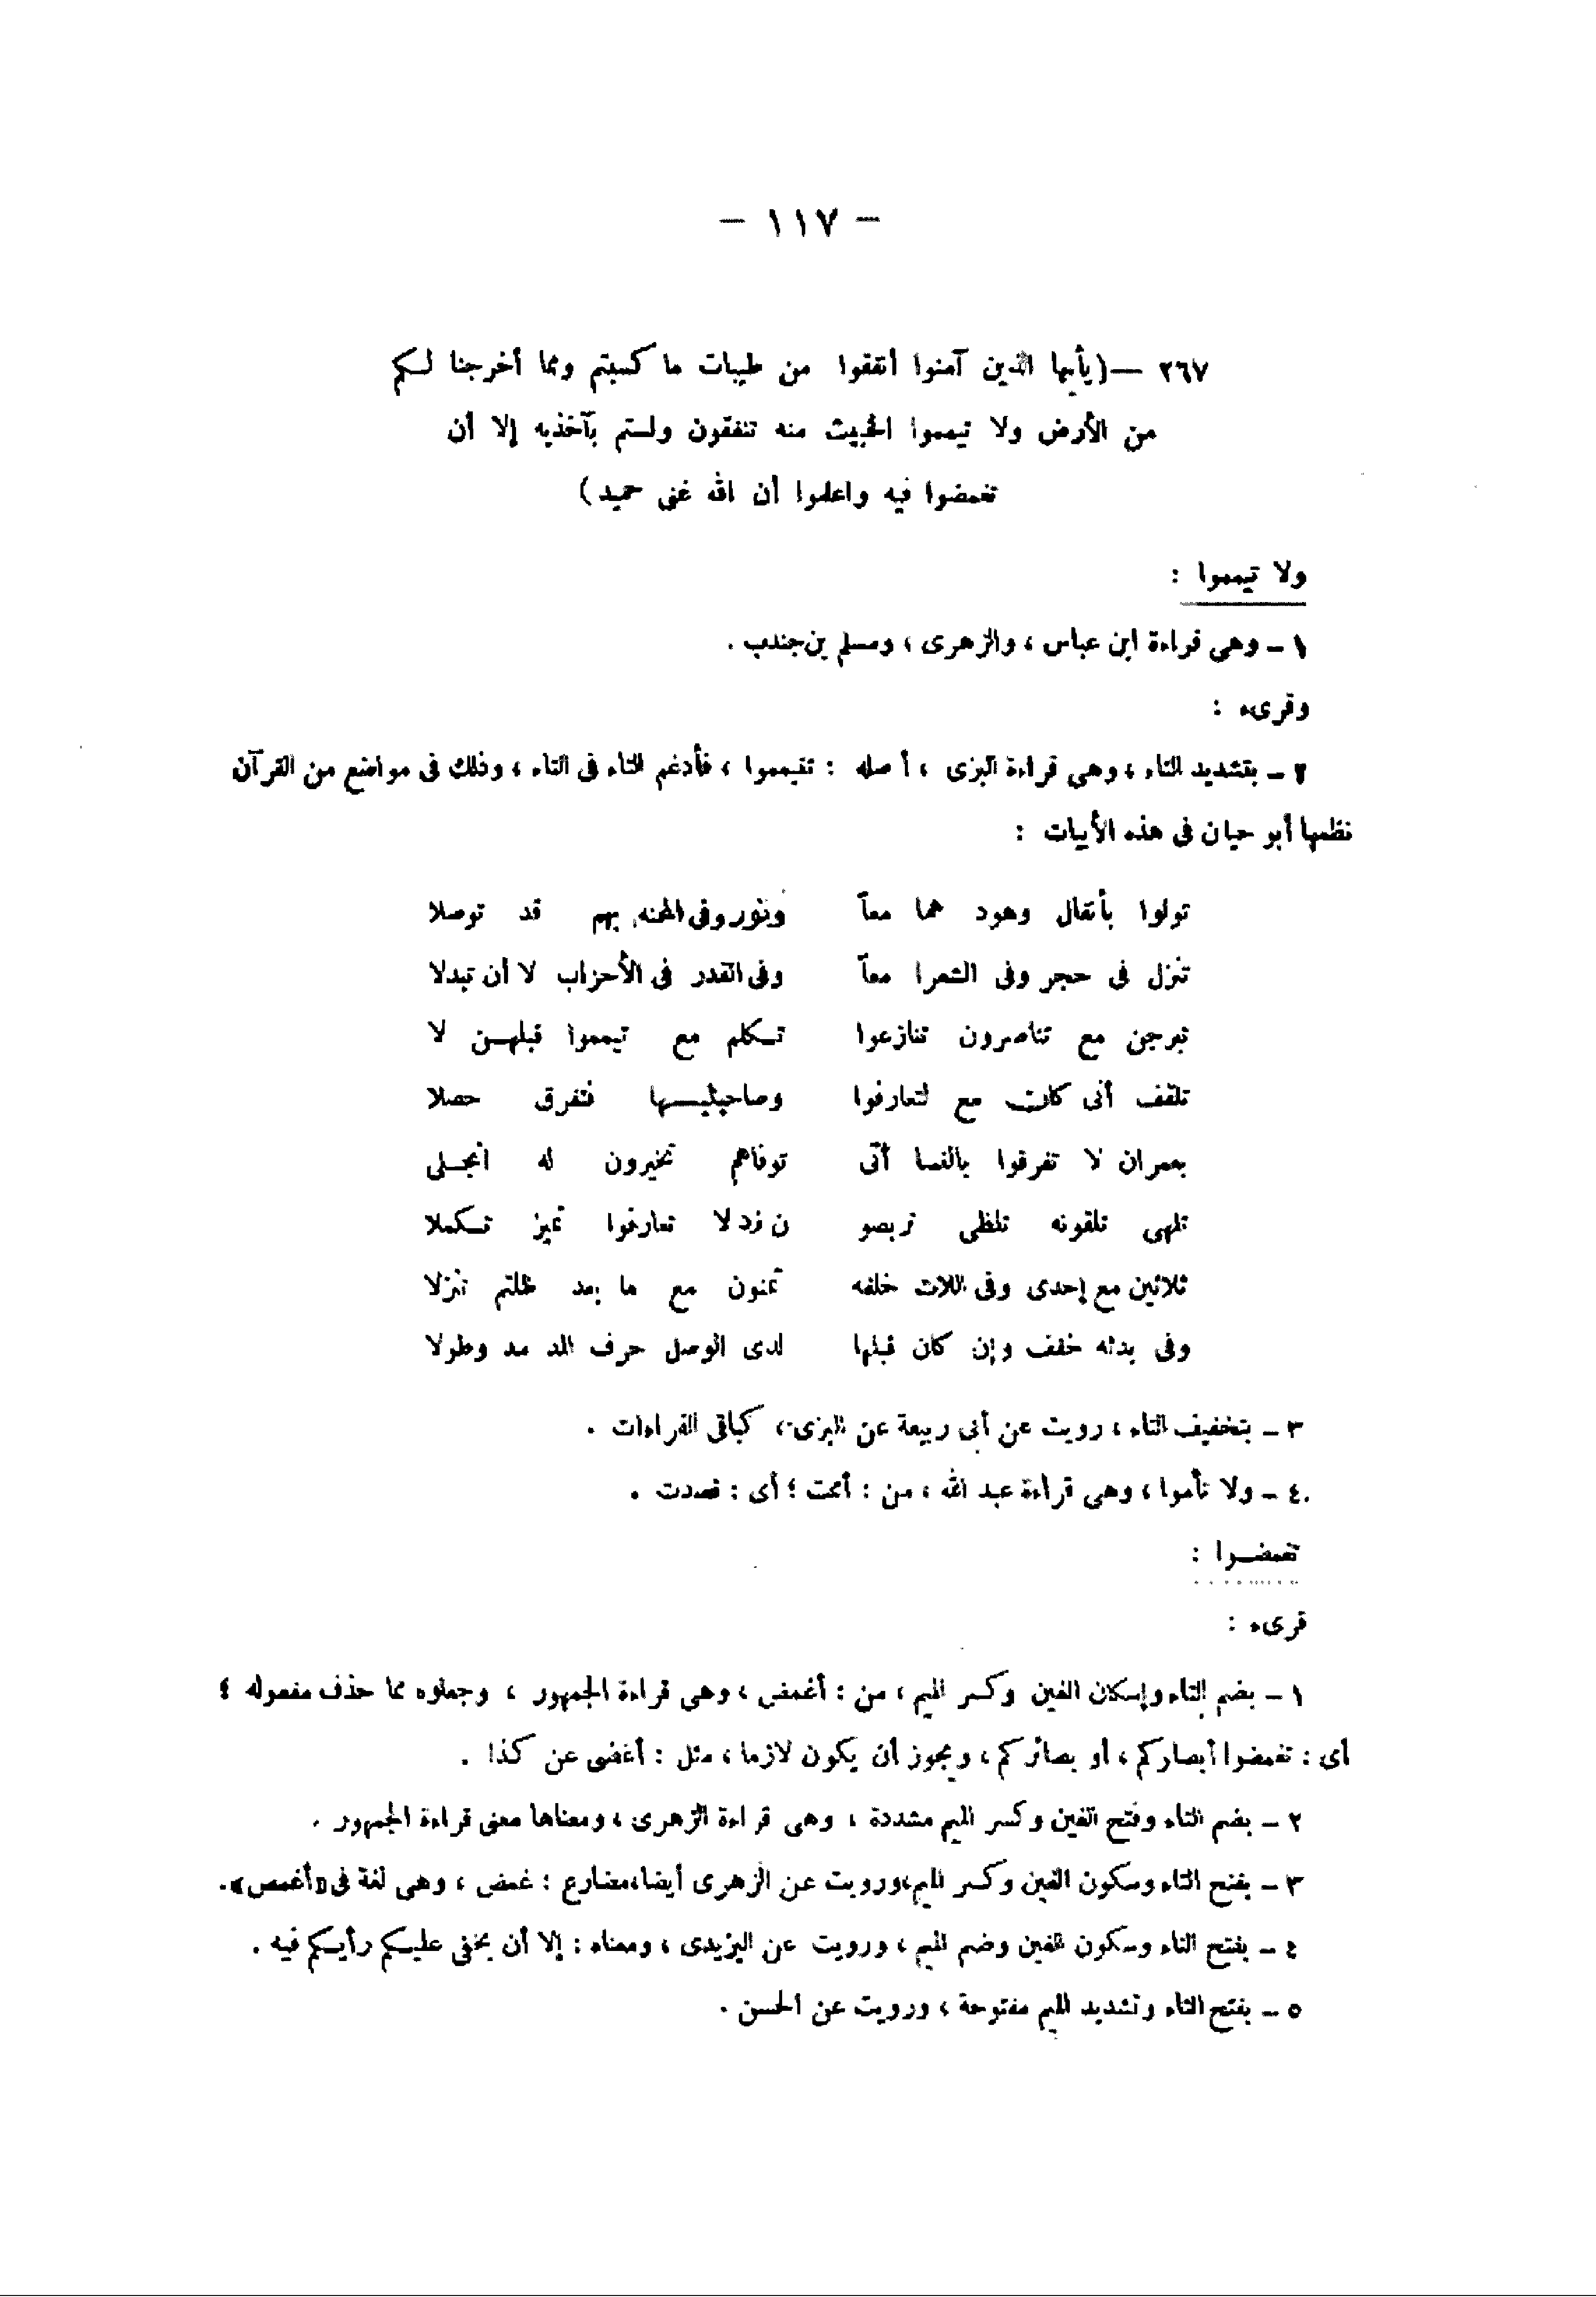 — ١١٧ —
٢٦٧ — (يأيها الذين آمنوا أنفقوا من طيبات ما كسبتم ومما أخرجنا لكم
من الأرض ولا تيمموا الخبيث منه تنفقون ولستم بآخذيه إلا أن
تغمضوا فيه واعلموا أن الله غنى حميد)
ولا تيمموا :
١ – وهى قراءة ابن عباس ، والزهرى ، ومسلم بن جندب .
وقرىء :
٢ – بتشديد التاء ، وهى قراءة البزى ، أصله : تتيمموا ، فأدغم التاء فى التاء ، وذلك فى مواضع من القرآن
نظمها أبو حيان فى هذه الأبيات :
تولوا بأنفال وهود هما معاً ونور وفى المحنه بهم قد توصلا
تنزل فى حجر وفى الشعرا معاً وفى القدر فى الأحزاب لا أن تبدلا
تبرجن مع تناصرون تنازعوا تكلم مع تيمموا قبلهن لا
تلقف أنى كانت مع لتعارفوا وصاحبتيها فتفرق حصلا
بعمران لا تفرقوا بالنسا أتى توفاهم تخيرون له انجلى
تلهى تلقونه تلظى تربصو ن زد لا تعارفوا تميز تكملا
ثلاثين مع إحدى وفى اللات خلفه تمنون مع ما بعد ظلتم تنزلا
وفى بدئه خفف وإن كان قبلها لدى الوصل حرف المد مد وطولا
٣ – بتخفيف التاء ، رويت عن أبى ربيعة عن البزى ، كباقى القراءات .
٤ – ولا تأموا ، وهى قراءة عبد الله ، من : أممت ؛ أى : قصدت .
تغمضوا :
قرىء :
١ – بضم التاء وإسكان الغين وكسر الميم ، من : أغمض ، وهى قراءة الجمهور ، وجعلوه مما حذف مفعوله ؛
أى : تغمضوا أبصاركم ، أو بصائركم ، ويجوز أن يكون لازما ، مثل : أغضى عن كذا .
٢ – بضم التاء وفتح الغين وكسر الميم مشددة ، وهى قراءة الزهرى ، ومعناها معنى قراءة الجمهور .
٣ – بفتح التاء وسكون الغين وكسر الميم، ورويت عن الزهرى أيضا، مضارع : غمض ، وهى لغة فى «أغمض».
٤ – بفتح التاء وسكون الغين وضم الميم ، ورويت عن اليزيدى ، ومعناه : إلا أن يخفى عليكم رأيكم فيه .
٥ – بفتح التاء وتشديد الميم مفتوحة ، ورويت عن الحسن .